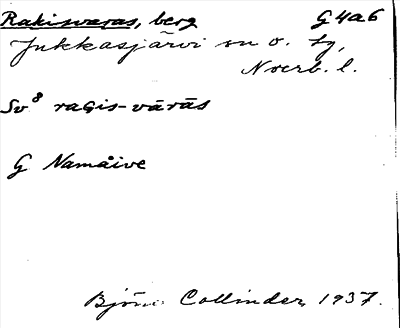 Rakisvaras, berg G4a6
Jukkasjärvi sn o. tg,
Norrb. l.
Sv⁸ raGis-vārās
G Namåive
Björn Collinder 1937.